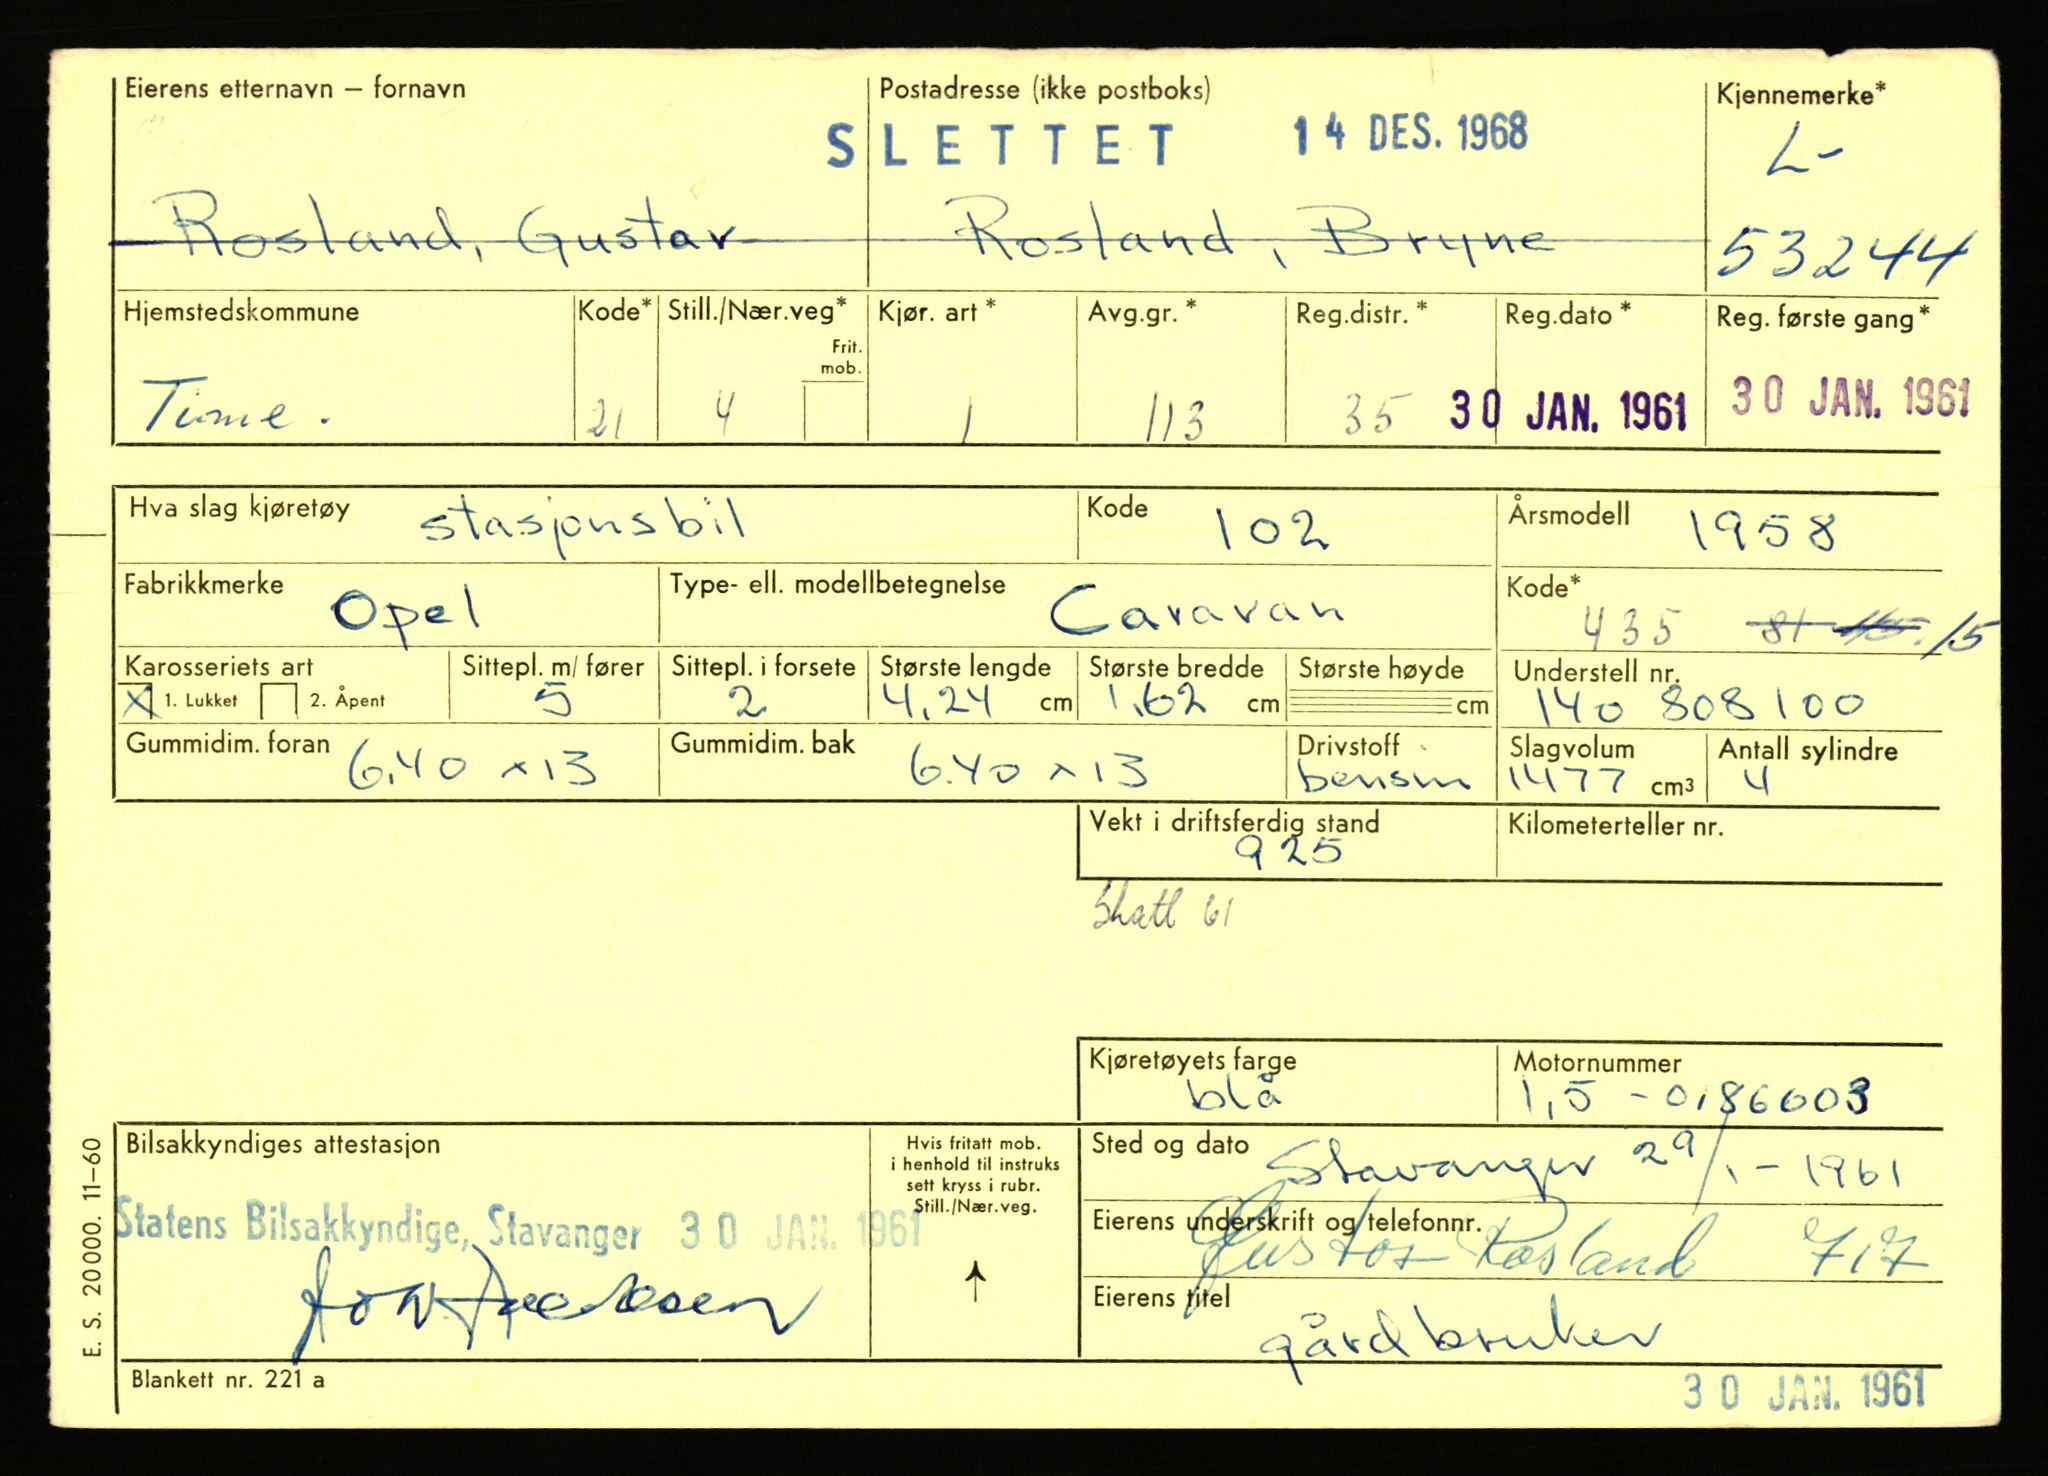 Eierens etternavn – fornavn Postadresse (ikke postboks) Kjennemerke*
SLETTET 14 DES. 1968 L-
Rosland, Gustav Rosland, Bryne 53244
Hjemstedskommune Kode* Still./Nær.veg* Kjør. art * Avg.gr. * Reg.distr. * Reg.dato * Reg. første gang*
Frit.
mob.
Time. 21 4 1 113 35 30 JAN. 1961 30 JAN. 1961
Hva slag kjøretøy stasjonsbil Kode 102 Årsmodell 1958
Fabrikkmerke Opel Type- ell. modellbetegnelse Caravan Kode* 435 81 15
Karosseriets art Sittepl. m/ fører Sittepl. i forsete Største lengde Største bredde Største høyde Understell nr.
X 1. Lukket 2. Åpent 5 2 4,24 cm 1,62 cm cm 140 808100
Gummidim. foran 6.40 x 13 Gummidim. bak 6.40 x 13 Drivstoff bensin Slagvolum 1477 cm³ Antall sylindre 4
Vekt i driftsferdig stand Kilometerteller nr.
925
Skatt 61
Kjøretøyets farge Motornummer
blå 1,5 - 0186003
Bilsakkyndiges attestasjon Sted og dato Stavanger 29/1-1961
Hvis fritatt mob.
i henhold til instruks
sett kryss i rubr.
Still./Nær.veg.
Statens Bilsakkyndige, Stavanger 30 JAN. 1961
Eierens underskrift og telefonnr.
Gustav Rosland 717
Eierens titel
gårdbruker
Blankett nr. 221 a
30 JAN. 1961
E. S. 20000. 11–60